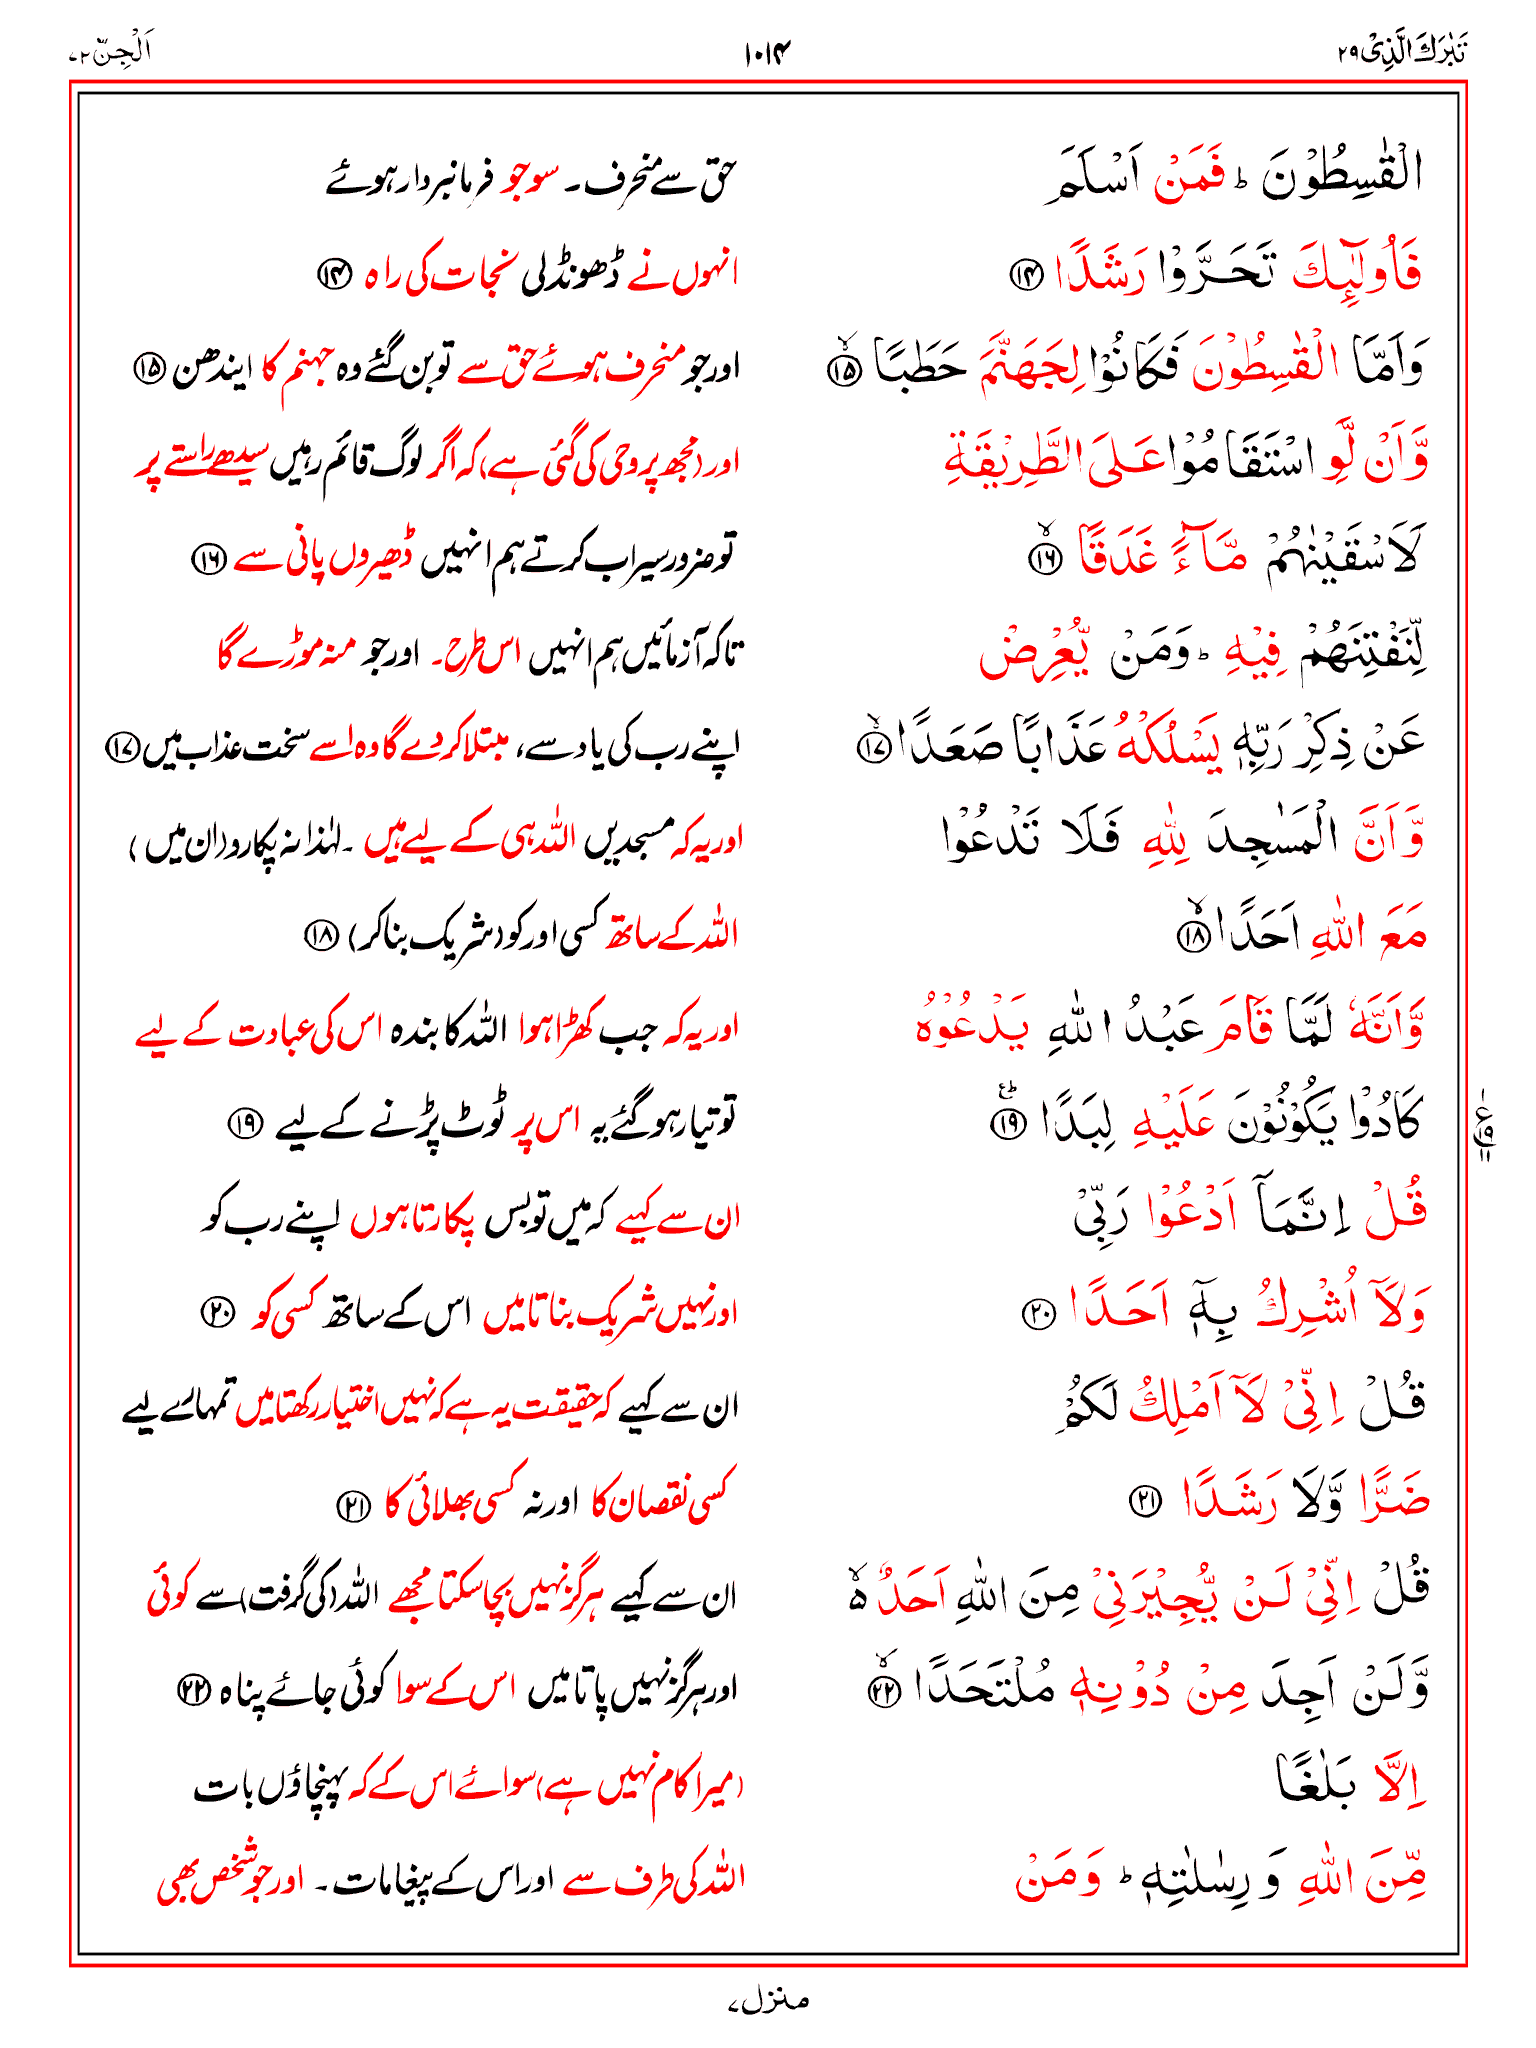 تَبٰرَكَ الَّذِیْ ۲۹
۱۰۱۴
اَلْجِنّ ۷۲
الْقٰسِطُوْنَ ؕ فَمَنْ اَسْلَمَ
حق سے منحرف۔ سو جو فرمانبردار ہوئے
فَاُولٰٓئِكَ تَحَرَّوْا رَشَدًا ﴿۱۴﴾
انہوں نے ڈھونڈ لی نجات کی راہ ﴿۱۴﴾
وَاَمَّا الْقٰسِطُوْنَ فَكَانُوْا لِجَهَنَّمَ حَطَبًا ﴿۱۵﴾ۙ
اور جو منحرف ہوئے حق سے تو بن گئے وہ جہنم کا ایندھن ﴿۱۵﴾
وَّاَنْ لَّوِ اسْتَقَامُوْا عَلَى الطَّرِيْقَةِ
اور (مجھ پر وحی کی گئی ہے) کہ اگر لوگ قائم رہیں سیدھے راستے پر
لَاَسْقَيْنٰهُمْ مَّآءً غَدَقًا ﴿۱۶﴾ۙ
تو ضرور سیراب کرتے ہم انہیں ڈھیروں پانی سے ﴿۱۶﴾
لِّنَفْتِنَهُمْ فِيْهِ ؕ وَمَنْ يُّعْرِضْ
تاکہ آزمائیں ہم انہیں اس طرح۔ اور جو منہ موڑے گا
عَنْ ذِكْرِ رَبِّهٖ يَسْلُكْهُ عَذَابًا صَعَدًا ﴿۱۷﴾ۙ
اپنے رب کی یاد سے، مبتلا کر دے گا وہ اسے سخت عذاب میں ﴿۱۷﴾
وَّاَنَّ الْمَسٰجِدَ لِلّٰهِ فَلَا تَدْعُوْا
اور یہ کہ مسجدیں اللہ ہی کے لیے ہیں۔ لہٰذا نہ پکارو (ان میں)
مَعَ اللّٰهِ اَحَدًا ﴿۱۸﴾ۙ
اللہ کے ساتھ کسی اور کو (شریک بنا کر) ﴿۱۸﴾
وَّاَنَّهٗ لَمَّا قَامَ عَبْدُ اللّٰهِ يَدْعُوْهُ
اور یہ کہ جب کھڑا ہوا اللہ کا بندہ اس کی عبادت کے لیے
كَادُوْا يَكُوْنُوْنَ عَلَيْهِ لِبَدًا ﴿۱۹﴾ؕ
تو تیار ہو گئے یہ اس پر ٹوٹ پڑنے کے لیے ﴿۱۹﴾
ع ۱۹ ۱۱
قُلْ اِنَّمَآ اَدْعُوْا رَبِّیْ
ان سے کہیے کہ میں تو بس پکارتا ہوں اپنے رب کو
وَلَآ اُشْرِكُ بِهٖٓ اَحَدًا ﴿۲۰﴾
اور نہیں شریک بناتا میں اس کے ساتھ کسی کو ﴿۲۰﴾
قُلْ اِنِّیْ لَآ اَمْلِكُ لَكُمْ
ان سے کہیے کہ حقیقت یہ ہے کہ نہیں اختیار رکھتا میں تمہارے لیے
ضَرًّا وَّلَا رَشَدًا ﴿۲۱﴾
کسی نقصان کا اور نہ کسی بھلائی کا ﴿۲۱﴾
قُلْ اِنِّیْ لَنْ يُّجِيْرَنِیْ مِنَ اللّٰهِ اَحَدٌ ۵ۙ
ان سے کہیے ہرگز نہیں بچا سکتا مجھے اللہ (کی گرفت) سے کوئی
وَّلَنْ اَجِدَ مِنْ دُوْنِهٖ مُلْتَحَدًا ﴿۲۲﴾ۙ
اور ہرگز نہیں پاتا میں اس کے سوا کوئی جائے پناہ ﴿۲۲﴾
اِلَّا بَلٰغًا
(میرا کام نہیں ہے) سوائے اس کے کہ پہنچاؤں بات
مِّنَ اللّٰهِ وَ رِسٰلٰتِهٖ ؕ وَمَنْ
اللہ کی طرف سے اور اس کے پیغامات۔ اور جو شخص بھی
منزل ۷